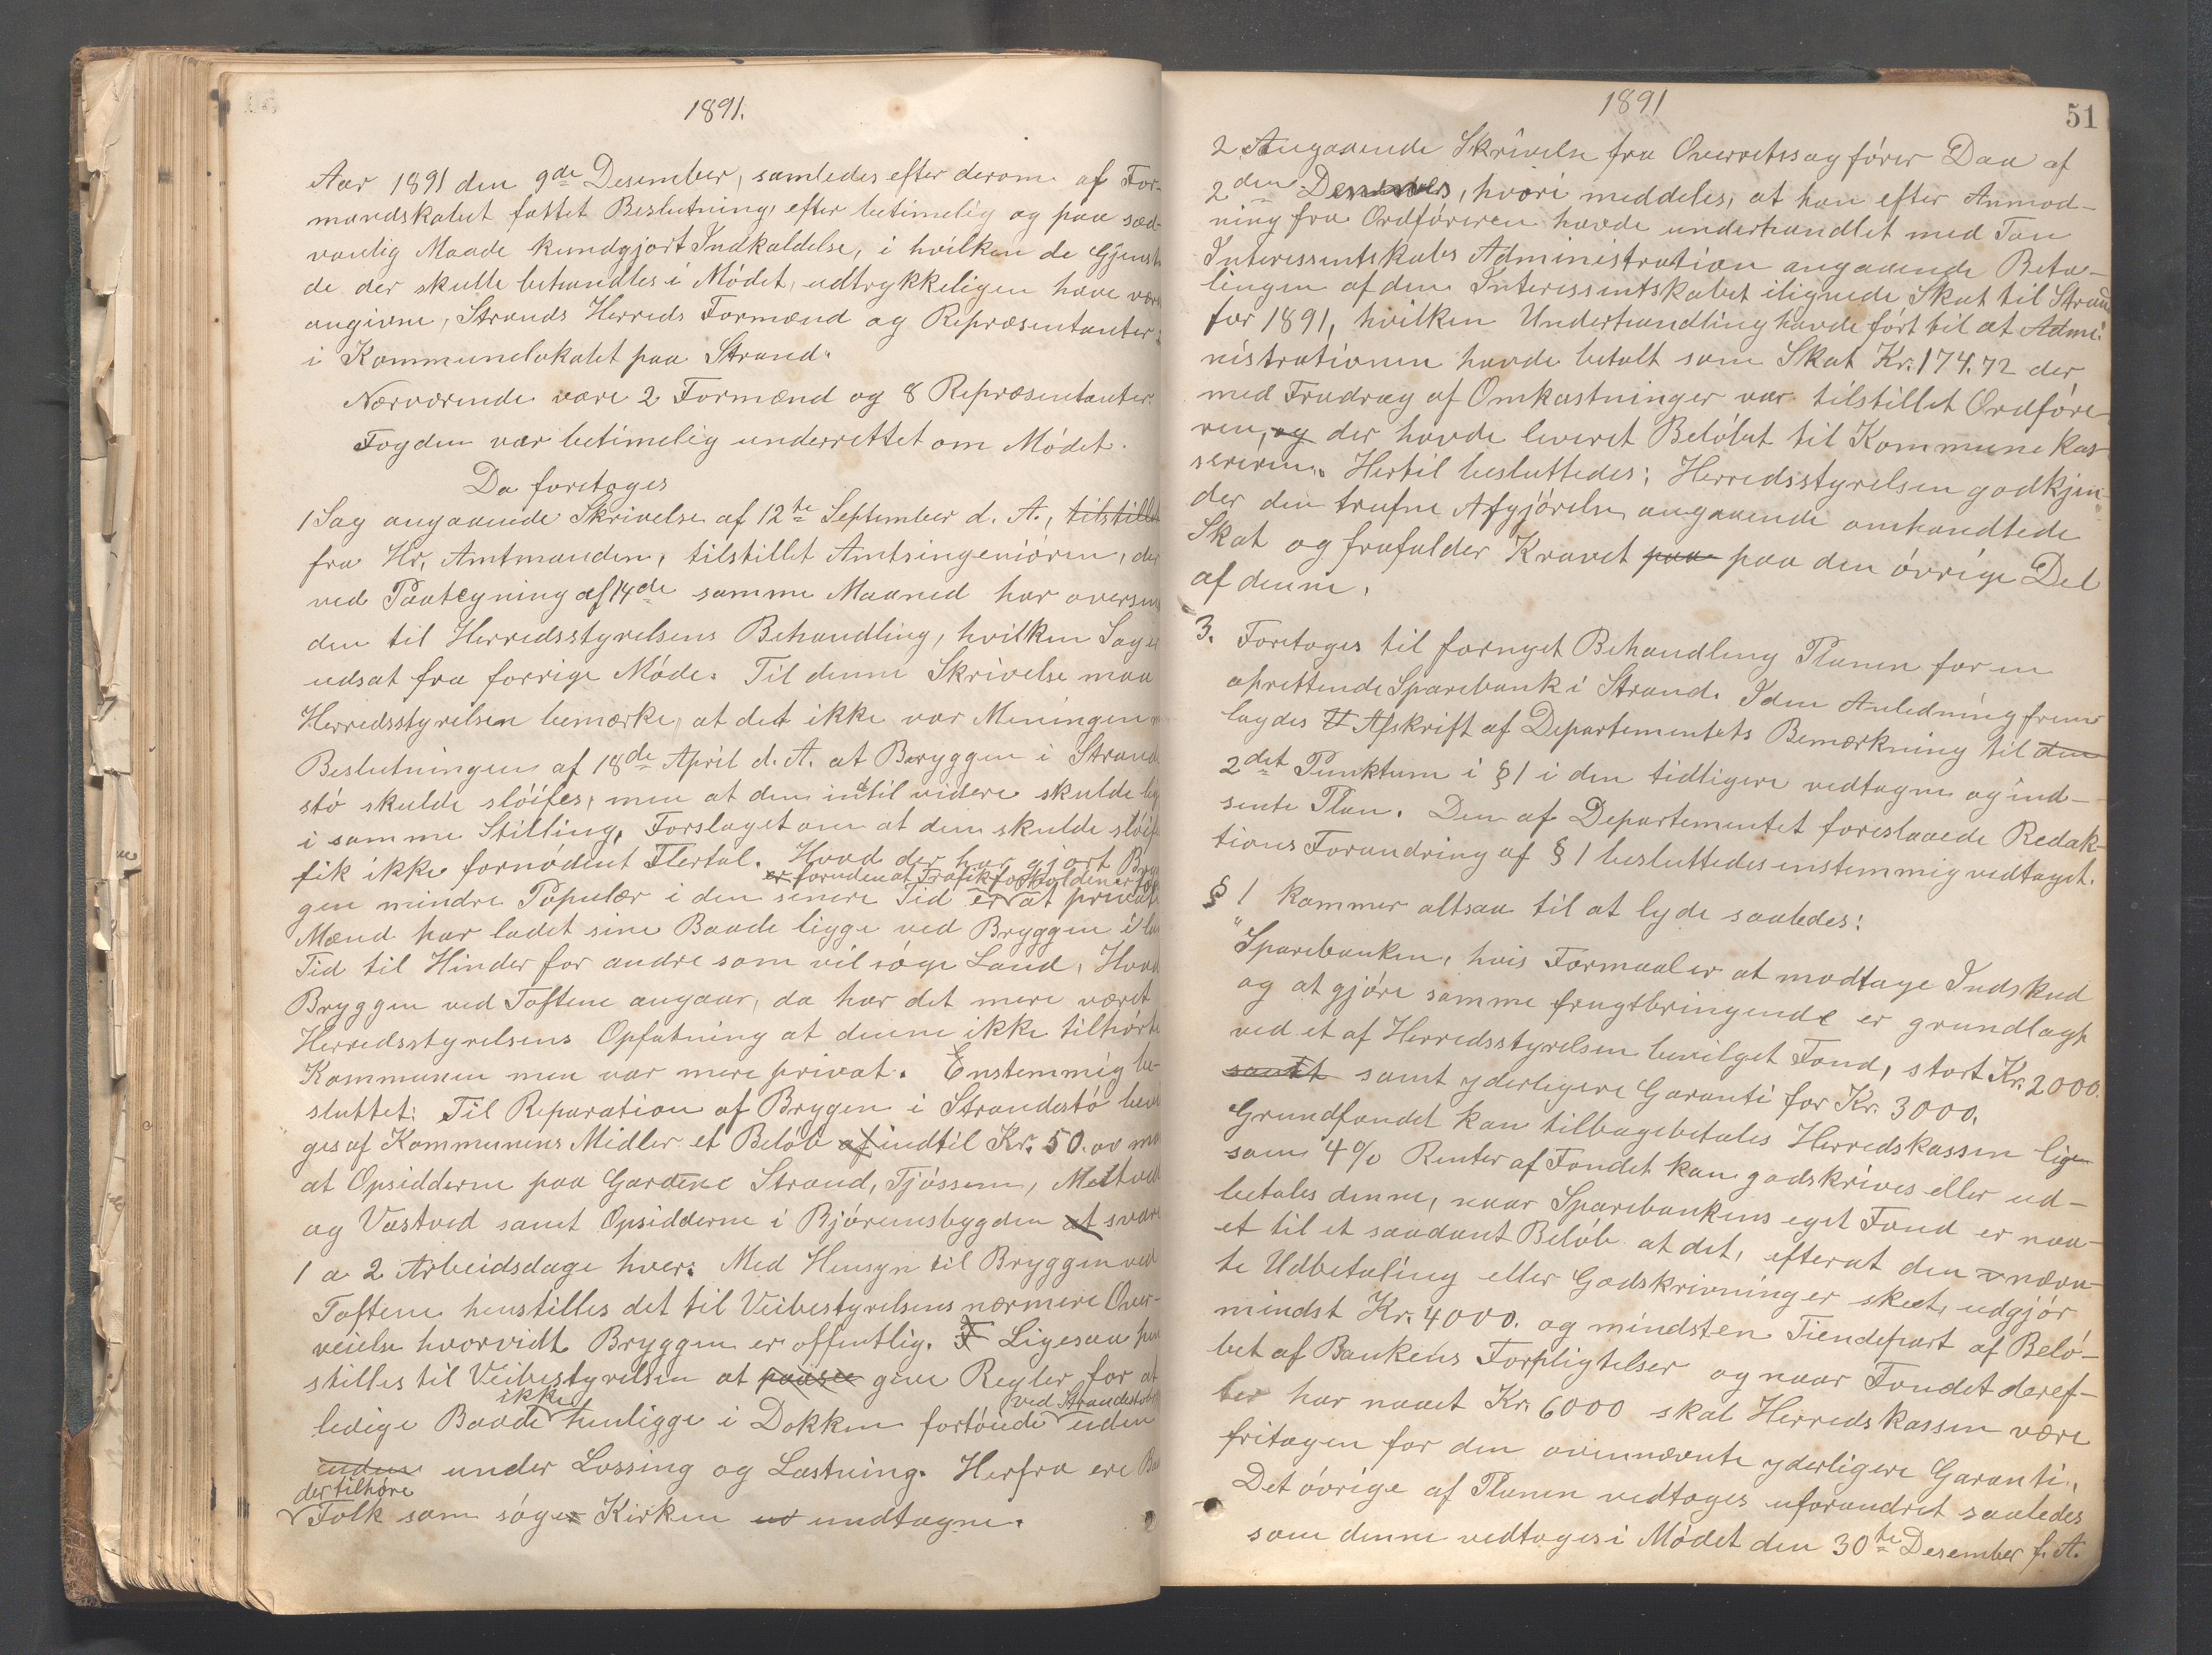 1891.
Aar 1891 den 9de Desember, samledes efter derom af For-
mandskabet fattet Beslutning, efter betimelig og paa sæd-
vanlig Maade kundgjort Indkaldelse, i hvilken de Gjenst
de der skulle behandles i Mödet, udtrykkeligen have være
angivne, Strands Herreds Formænd og Repræsentanter
i Kommunelokalet paa Strand.
Nærværende vare 2 Formænd og 8 Repræsentanter.
Fogden var betimelig underrettet om Mödet.
Da foretoges
1 Sag angaaende Skrivelse af 12te September d. A., tilstillet
fra Hr. Amtmanden, tilstillet Amtsingeniören, der
ved Paategning af 14de samme Maaned har oversendt
den til Herredsstyrelsens Behandling, hvilken Sag er
udsat fra forrige Möde. Til denne Skrivelse maa
Herredsstyrelsen bemærke, at det ikke var Meningen
Beslutningen af 18de April d. A. at Beryggen i Strand
stö skulde slöifes, men at den indtil videre skulde lig
i samme Stilling, Forslaget om at den skulde slöif
fik ikke fornödent Flertal. Hvad der har gjort Bryg
er foruden at Trafikforholdene er
gen mindre Populær i den senere Tid er at privat
Mænd har ladet sine Baade ligge ved Bryggen i la
Tid til Hinder for andre som vil söge Land, Hvad
Bryggen ved Toftene angaar, da har det mere været
Herredsstyrelsens Opfatning at denne ikke tilhörte
Kommunen men var mere privat. Enstemmig be-
sluttet: Til Reparation af Brygen i Strandestö bevil
ges af Kommunens Midler et Belöb af indtil Kr. 50. mo
at Opsidderne paa Gardene Strand, Tjössem,
og Vastved samt Opsidderne i Björeimsbygden at svare
1 a 2 Arbeidsdage hver. Med Hensyn til Bryggen ved
Toftene henstilles det til Veibestyrelsens nærmere Over-
veielse hvorvidt Bryggen er offentlig. F Ligesaa hen
stilles til Veibestyrelsen at paase give Regler for at
ikke ved Strandestö
ledige Baade henligge i Dokken fortöiede uden
uden under Lossing og Lastning. Herfra ere Ba
der tilhöre
Folk som söger Kirken undtagne.
1891
51
2 Angaaende Skrivelse fra Overretssagförer Daa af
2den Desember, hvori meddeles, at han efter Anmod-
ning fra Ordföreren havde underhandlet med Tau
Interessentskabs Administration angaaende Beta-
lingen af den Interessentskabet ilignede Skat til Strand
for 1891, hvilken Underhandling havde fört til at Admi-
nistrationen havde betalt som Skat Kr. 174.72 der
med Fradrag af Omkostninger var tilstillet Ordföre-
ren, og der havde leveret Belöbet til Kommunekas-
sereren. Hertil besluttedes: Herredsstyrelsen godkjen-
der den trufne Afgjörelse angaaende omhandlede
Skat og frafalder Kravet paa paa den övrige Del
af denne.
3. Foretoges til fornyet Behandling Planen for en
oprettende Sparebank i Strand. I den Anledning frem-
lagdes Afskrift af Departementets Bemærkning til den
2det Punktum i § 1 i den tidligere vedtagne og ind-
sente Plan. Den af Departementet foreslaaede Redak-
tions Forandring af § 1 besluttedes enstemmig vedtaget.
§ 1 kommer altsaa til at lyde saaledes:
"Sparebanken, hvis Formaal er at modtage Indskud
og at gjöre samme frugtbringende er grundlagt
ved et af Herredsstyrelsen bevilget Fond, stort Kr. 2000.
samt samt yderligere Garanti for Kr. 3000.
Grundfondet kan tilbagebetales Herredskassen lige-
som 4% Renter af Fondet kan godskrives eller ud-
betales denne, naar Sparebankens eget Fond er naa-
et til et saadant Belöb at det, efterat den nævn-
te Udbetaling eller Godskrivning er skeet, udgjör
mindst Kr. 4000. og mindst en Tiendepart af Belö-
bet af Bankens Forpligtelser og naar Fondet deref-
ter har naaet Kr. 6000 skal Herredskassen være
fritagen for den ovennævnte yderligere Garanti.
Det övrige af Planen vedtoges uforandret saaledes
som denne vedtoges i Mödet den 30te Desember f. A.